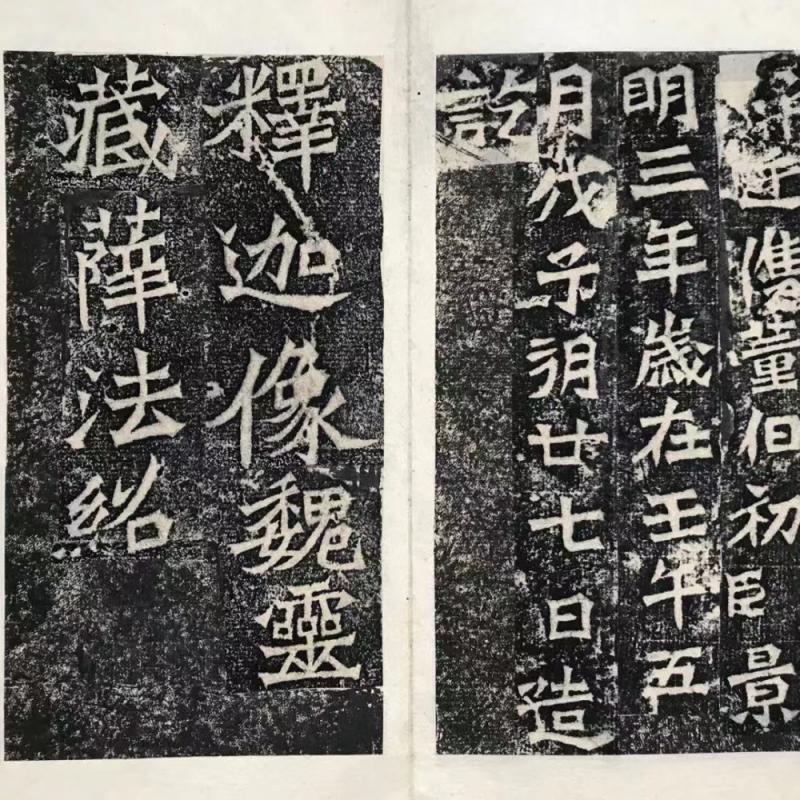 廷儁董伯初臣景
明三年歲在壬午五
月戊子朔廿七日造
訖
釋迦像魏靈
藏薛法紹